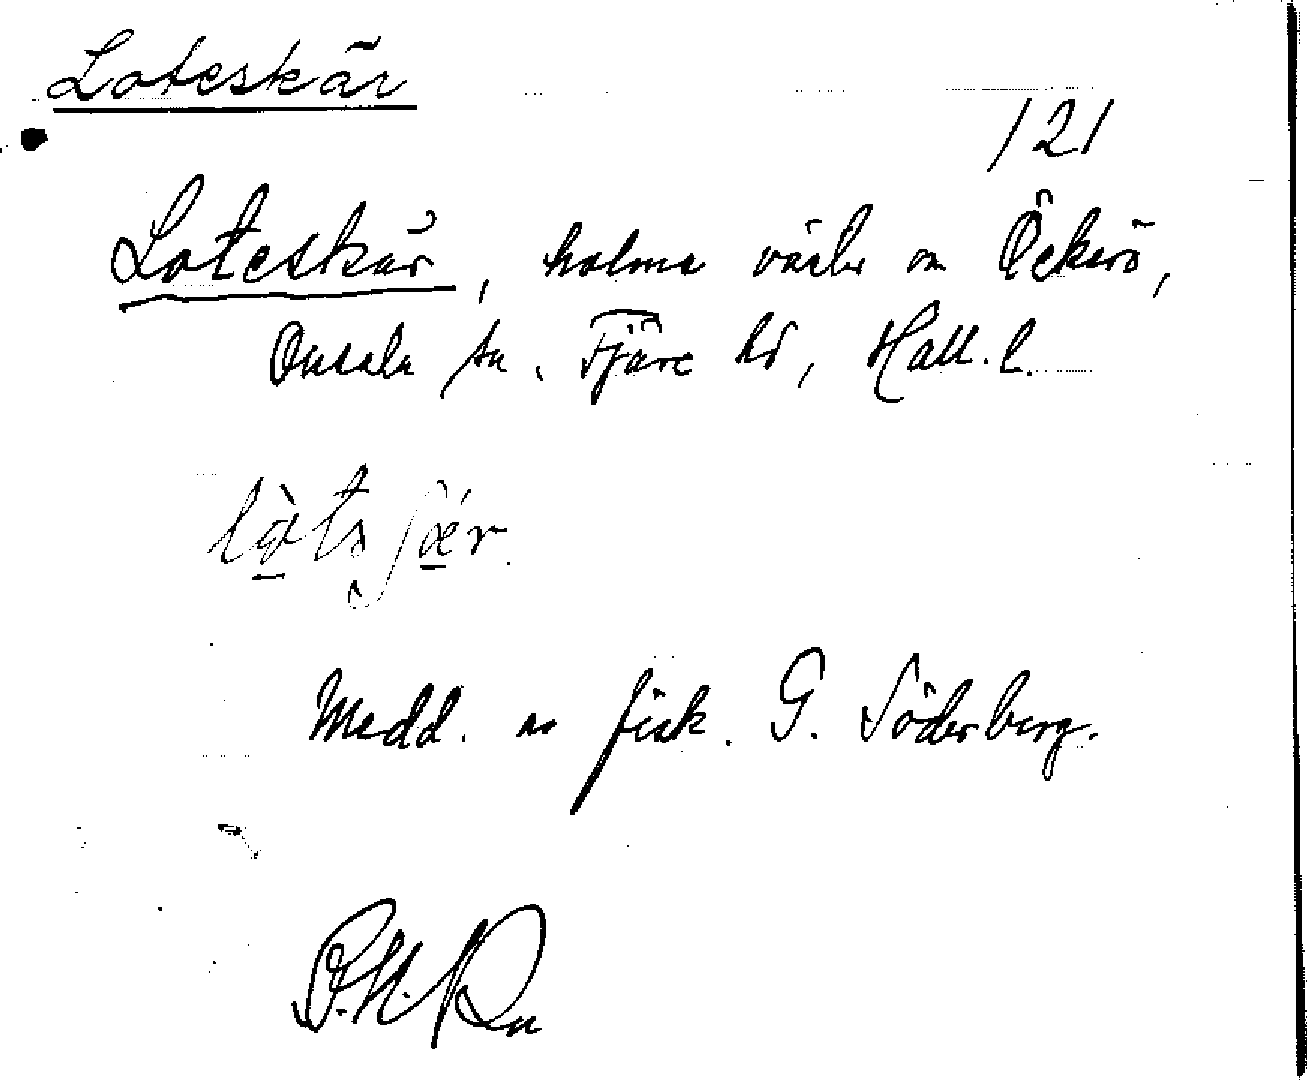 Loteskär
121
Loteskär, holme väster om Öckerö,
Onsala sn. Fjäre hd, Hall. l.
Medd. av fisk. G. Söderberg.